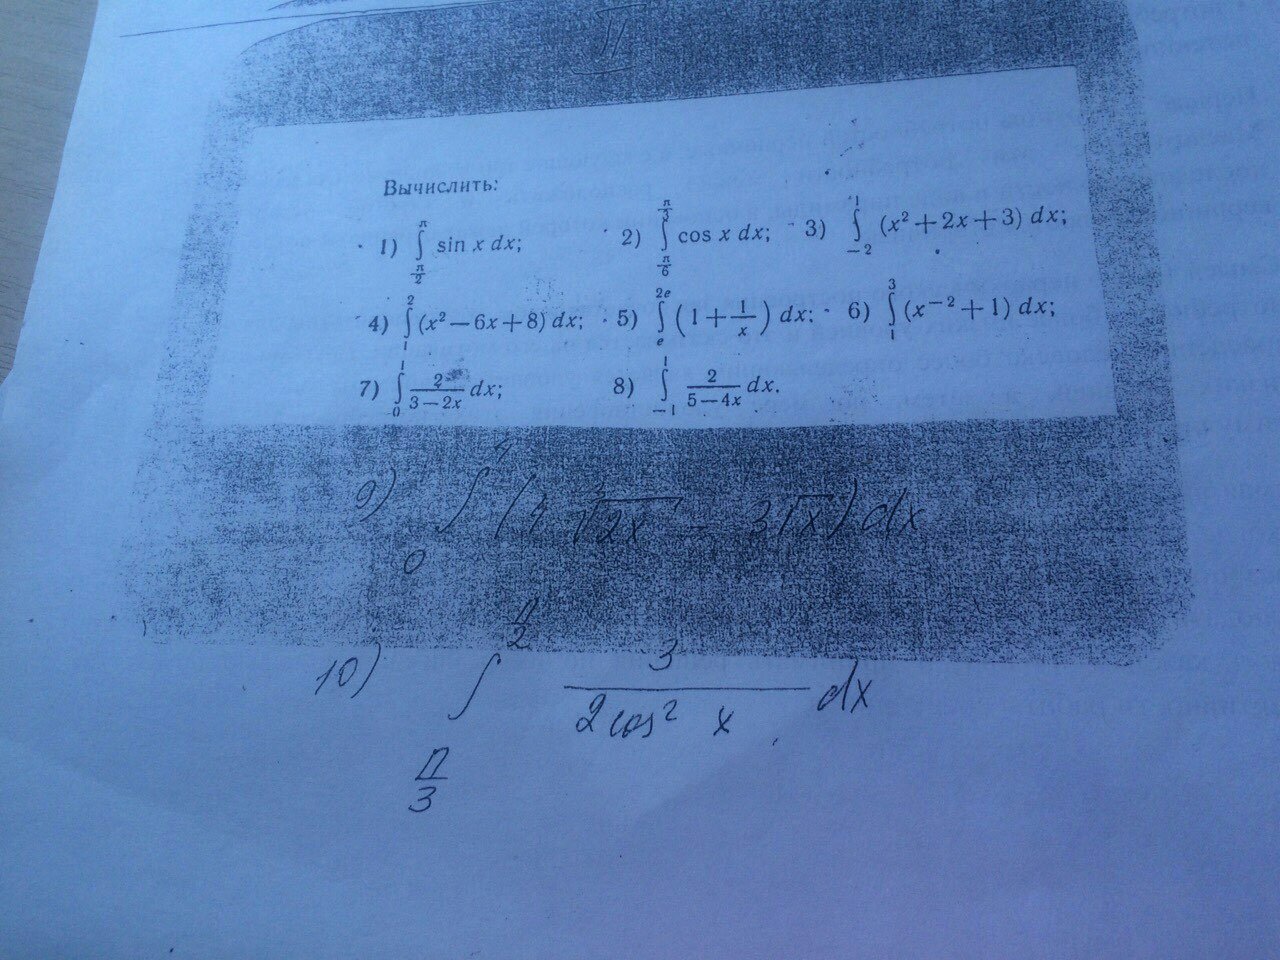 II
Вычислить:
1) ∫_{π/2}^{π} sin x dx; 2) ∫_{π/6}^{π/3} cos x dx; 3) ∫_{-2}^{1} (x² + 2x + 3) dx;
4) ∫_{1}^{2} (x² − 6x + 8) dx; 5) ∫_{e}^{2e} (1 + 1/x) dx; 6) ∫_{1}^{3} (x⁻² + 1) dx;
7) ∫_{0}^{1} 2/(3 − 2x) dx; 8) ∫_{-1}^{1} 2/(5 − 4x) dx.
9) ∫_{0}^{4} ( √2x − 3√x) dx
10) ∫_{π/3}^{π/2} 3/(2cos² x) dx